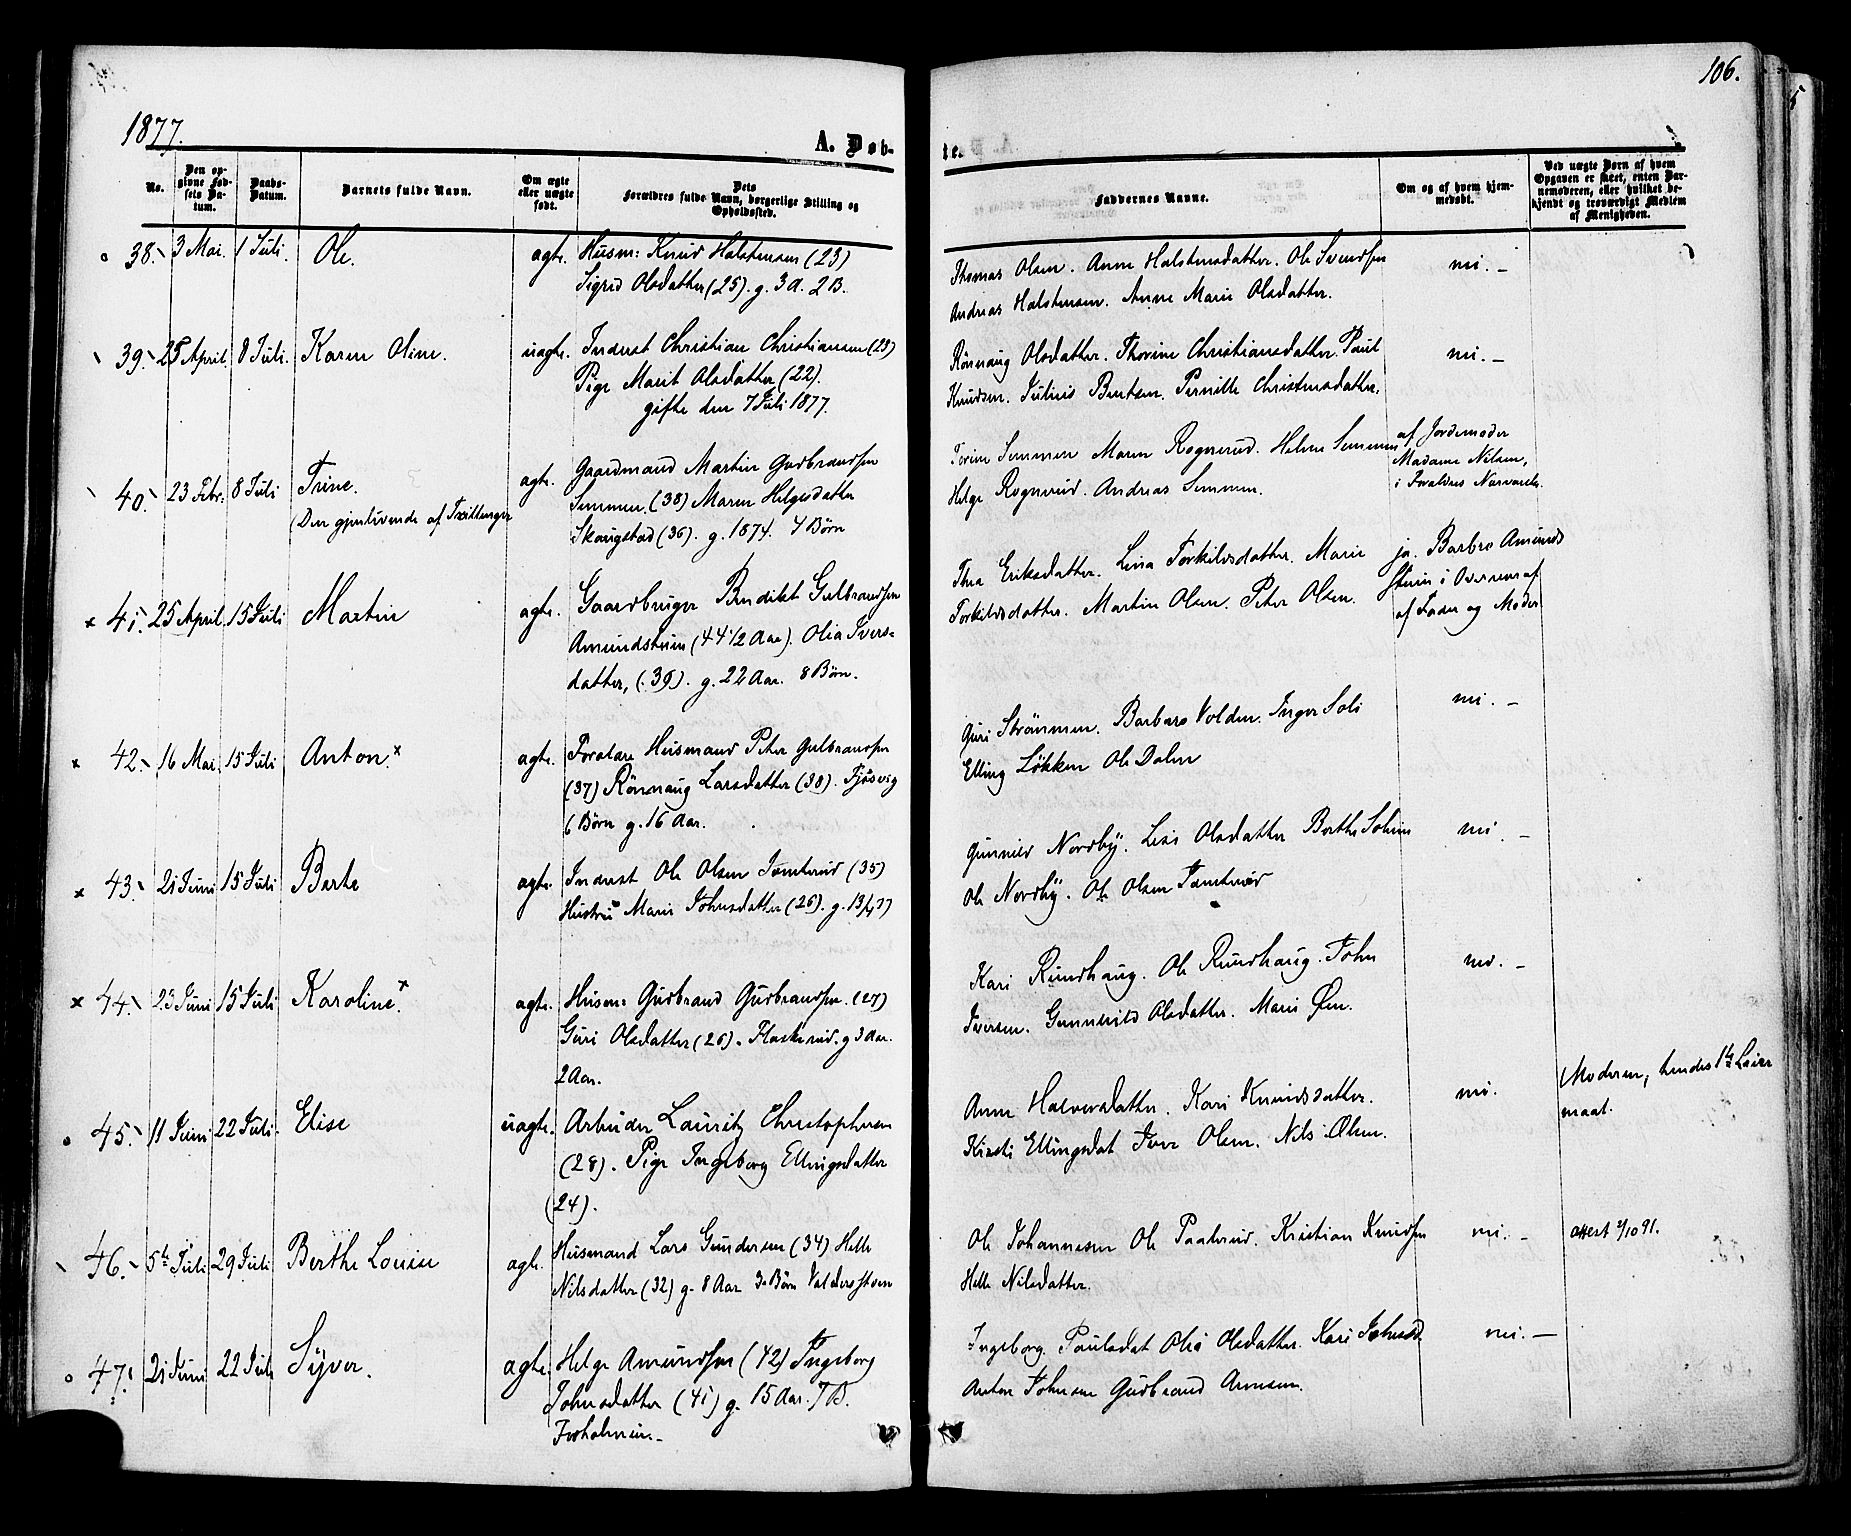 106.
1877.
A. Døb-
te.
No.
Den op-
givne Fød-
sels Da-
tum.
Daabs-
Datum.
Barnets fulde Navn.
Om ægte
eller uægte
født.
Dets
Forældres fulde Navn, borgerlige Stilling og
Opholdssted.
Faddernes Navne.
Om og af hvem hjem-
medøbt.
Ved uægte Børn af hvem
Opgaven er skeet, enten Bar-
nemoderen, eller hvilket be-
kjendt og troværdigt Medlem
af Menigheden.
38. 3 Mai. 1 Juli. Ole. ægte. Husm: Knud Halstensen (23)
Sigrid Olsdatter (25). g. 3 A. 2 B.
Thomas Olsen. Anne Halstensdatter. Ole Svendsen
Andreas Halstensen. Anne Marie Olsdatter.
nei.-
39. 25 April. 8 Juli. Karen Oline. uægte. Inderst Christian Christiansen (23)
Pige Marit Olsdatter (22).
gifte den 7 Juli 1877.
Rönnaug Olsdatter. Thorine Christiansdatter. Paul
Knudsen. Julius Bentsen. Pernille Christensdatter.
nei.-
40. 23 Febr. 8 Juli Trine. ægte. Gaardmand Martin Gudbrandsen
(Den gjenlevende af Tvillinger
Semmen. (38) Maren Helgesdatter
Skougstad (36). g. 1874. 4 Børn
Torine Semmen Maren Rognerud. Helene Semmen
Helge Rognerud. Andreas Semmen.
af Jordemoder
Madame Nilsen,
i Forældres Nærværelse.
41. 25 April 15 Juli Martin ægte. Gaardbruger Bendikt Gulbrandsen
Amundstuen (44 1/2 Aar). Olia Ivers-
datter, (39). g. 22 Aar. 8 Børn.
Thea Eriksdatter. Lina Torkildsdatter. Marie
Torkildsdatter. Martin Olsen. Peter Olsen.
ja. Barbro Amunds
stuen i Overvær af
af Fader og Moder
42. 16 Mai. 15 Juli Anton. x ægte. Husmand Peter Gulbrandsen
(37) Rönnaug Larsdatter (38). Fjösvig
6 Børn g. 16 Aar.
Guri Strömmen. Barbara Volden. Inger Soli
Elling Løkken Ole Dalen
nei.-
43. 21 Juni 15 Juli Berte ægte. Inderst Ole Olsen Tomterud (35)
Hustru Marie Johnsdatter (26). g. 13/4 77
Gunnild Nordby. Lisi Olsdatter Berthe
Ole Nordby. Ole Olsen Tomterud
nei.-
44. 23 Juni 15 Juli Karoline. x ægte. Husm: Gudbrand Gudbrandsen. (27)
Guri Olsdatter (26). Flaskerud. g 3 Aar.
2 Aar.
Kari Rundhaug. Ole Rundhaug. John
Iversen. Gunnild Olsdatter. Marie Øen.
nei.-
45. 11 Juni 22 Juli. Elise uægte. Arbeider Lauritz Christophersen
(28). Pige Ingeborg Ellingsdatter
(24).
Anne Halvorsdatter. Kari Knudsdatter.
Kirsti Ellingsdat Iver Olsen. Nils Olsen.
nei.
Moderen, hendes 1ste Leier
maal.
46. 5te Juli 29 Juli Berthe Louise ægte. Husmand Lars Gundersen (34) Helle
Nilsdatter (32) g. 8 Aar 3 Børn
Ole Johannesen Ole Paalerud. Kristian Knudsen
Helle Nilsdatter.
nei.-
attest 2/10 91.
47. 21 Juni 22 Juli Syver. ægte. Helge Amundsen (42) Ingeborg
Johnsdatter (41) g. 15 Aar. 7 B.
Ingeborg Paulsdat Olia Olsdatter. Kari Johnsd.
Anton Johnsen Gudbrand Arnesen.
nei.-